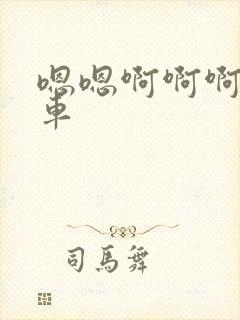 嗯嗯啊啊啊
车
司馬舞